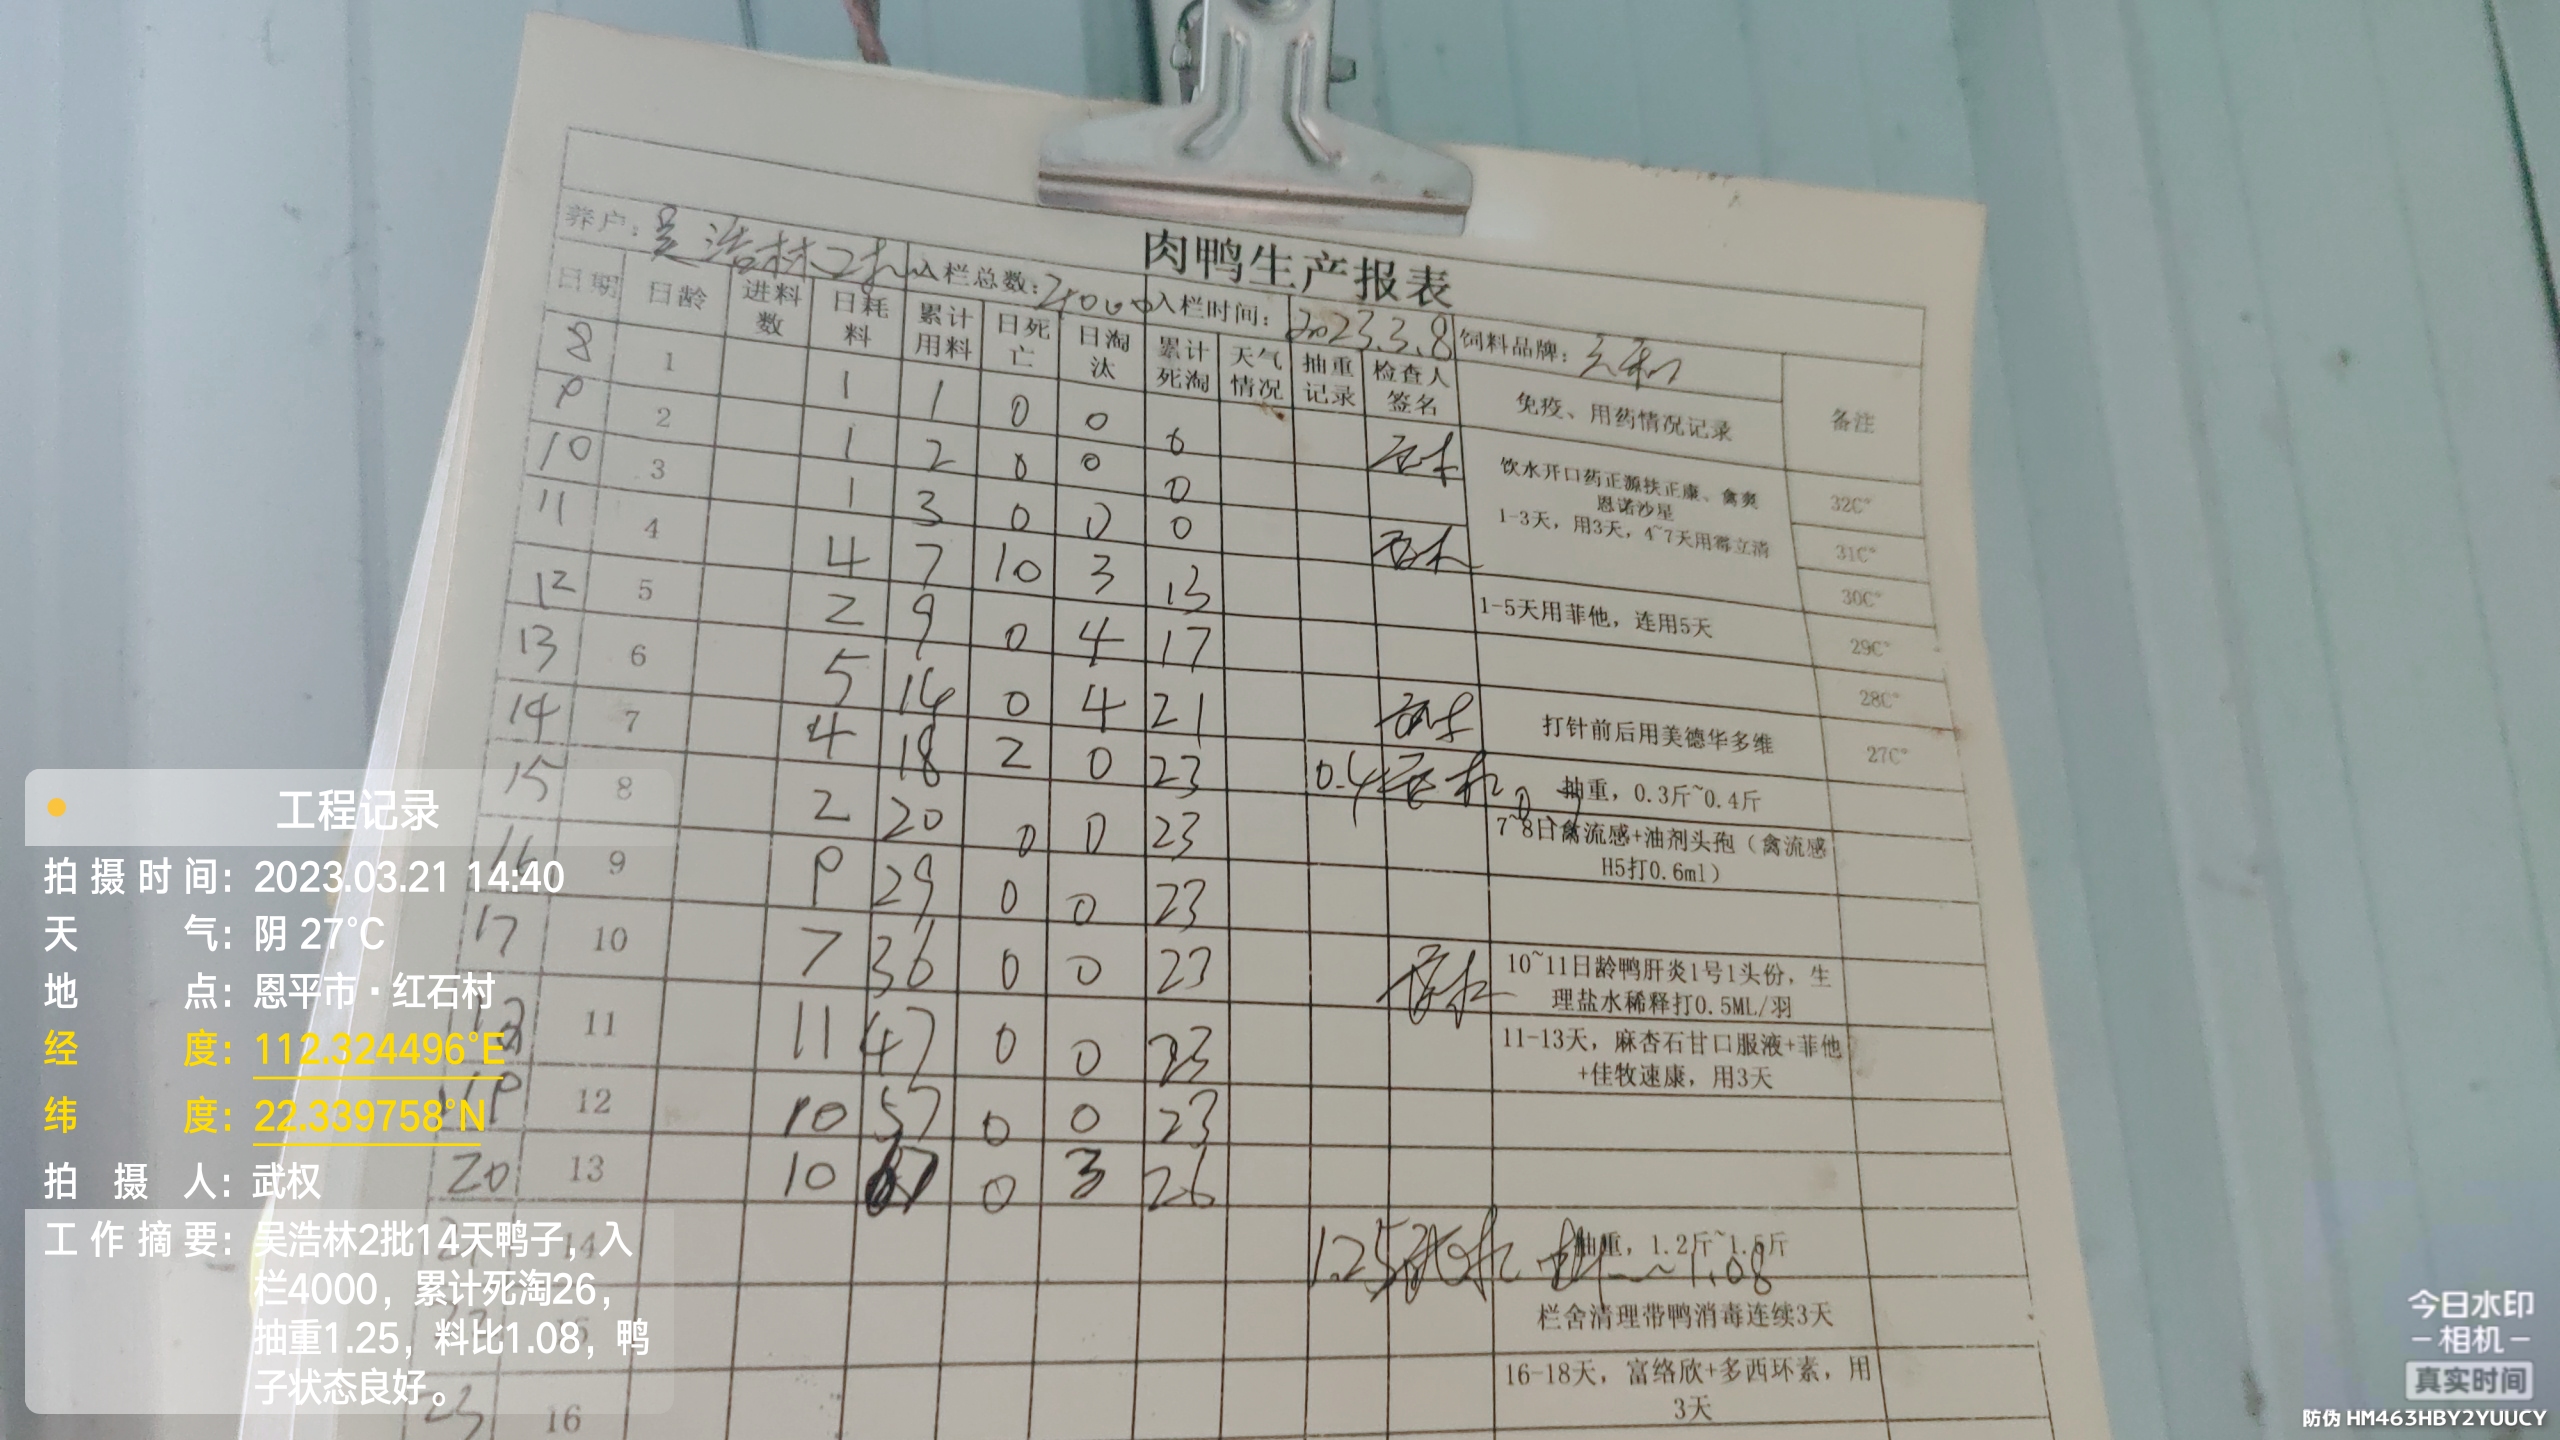 肉鸭生产报表
养户: 吴浩林2批 入栏总数: 4000 入栏时间: 2023.3.8 饲料品牌:
日期 日龄 进料数 日耗料 累计用料 日死亡 日淘汰 累计死淘 天气情况 抽重记录 检查人签名 免疫、用药情况记录 备注
8 1 1 1 0 0 0
9 2 1 2 0 0 0 32C°
10 3 1 3 0 0 0 31C°
饮水开口药正源扶正康、禽爽
恩诺沙星
1-3天，用3天，4~7天用霉立清
11 4 4 7 10 3 13 30C°
12 5 2 9 0 4 17 1-5天用菲他，连用5天 29C°
13 6 5 14 0 4 21 28C°
14 7 4 18 2 0 23 0.4 打针前后用美德华多维 27C°
抽重，0.3斤~0.4斤
15 8 2 20 0 0 23 7~8日禽流感+油剂头孢（禽流感
H5打0.6ml）
16 9 9 29 0 0 23
17 10 7 36 0 0 23 10~11日龄鸭肝炎1号1头份，生
理盐水稀释打0.5ML/羽
18 11 11 47 0 0 23 11-13天，麻杏石甘口服液+菲他
+佳牧速康，用3天
19 12 10 57 0 0 23
20 13 10 67 0 3 26
21 14 1.25 抽重，1.2斤~1.5斤 1.08
15 栏舍清理带鸭消毒连续3天
23 16 16-18天，富络欣+多西环素，用
3天
工程记录
拍摄时间: 2023.03.21 14:40
天气: 阴 27℃
地点: 恩平市·红石村
经度: 112.324496°E
纬度: 22.339758°N
拍摄人: 武权
工作摘要: 吴浩林2批14天鸭子，入
栏4000，累计死淘26，
抽重1.25，料比1.08，鸭
子状态良好。
今日水印
相机
真实时间
防伪 HM463HBY2YUUCY